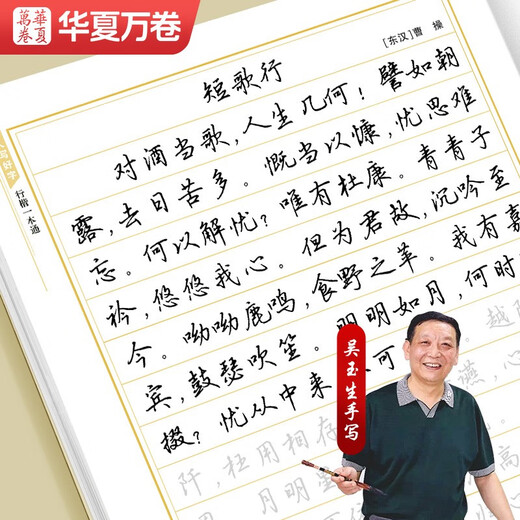 華夏萬卷
华夏万卷
[东汉]曹 操
短歌行
对酒当歌，人生几何！譬如朝
露，去日苦多。慨当以慷，忧思难
忘。何以解忧？唯有杜康。青青子
衿，悠悠我心。但为君故，沉吟至
今。呦呦鹿鸣，食野之苹。我有嘉
宾，鼓瑟吹笙。明明如月，何时
掇？忧从中来 可
越
阡，枉用相存 䜩，心
月明星 高
行楷一本通
吴玉生手写